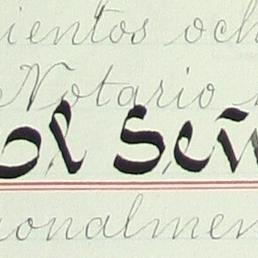 ientos och
Notario
ol Señ
ionalmen